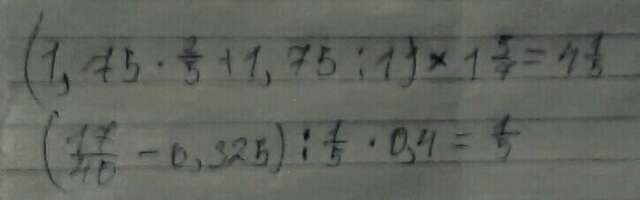 (1,75 · 2/5 + 1,75 : 1) × 1 5/7 = 4 1/5
(17/40 - 0,325) : 1/5 · 0,4 = 1/5